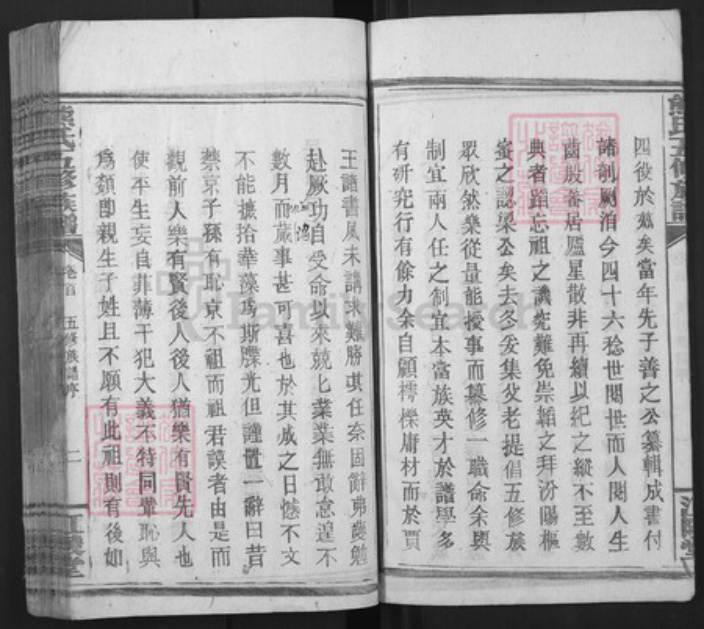 熊氏五修族譜
四役於兹矣當年先子善之公纂輯成書付
諸剞劂洎今四十六稔世閱世而人閱人生
齒殷蕃居廬星散非再續以紀之縱不至數
典者蹈忘祖之譏究難免崇韜之拜汾陽樞
蜜之認梁公矣去冬爰集父老提倡五修族
眾欣然樂從量能授事而纂修一職命余與
制宜兩人任之制宜本當族英才於譜學多
有研究行有餘力余自顧樗櫟庸材而於賈
江陵堂
王諸書夙未講求難勝其任奈固辭弗獲勉
赴厥功自受命以來兢匕業業無敢怠遑不
數月而蕆事甚可喜也於其成之日愧不文
不能摭拾華藻為斯牒光但謹置一辭曰昔
蔡京子孫有恥京不祖而祖君謨者由是而
觀前人樂有賢後人後人猶樂有賢先人也
使平生妄自菲薄干犯大義不特同輩恥與
為類即親生子姓且不願有此祖則有後如
熊氏五修族譜
卷首 五修族譜序
二
江陵堂
FamilySearch